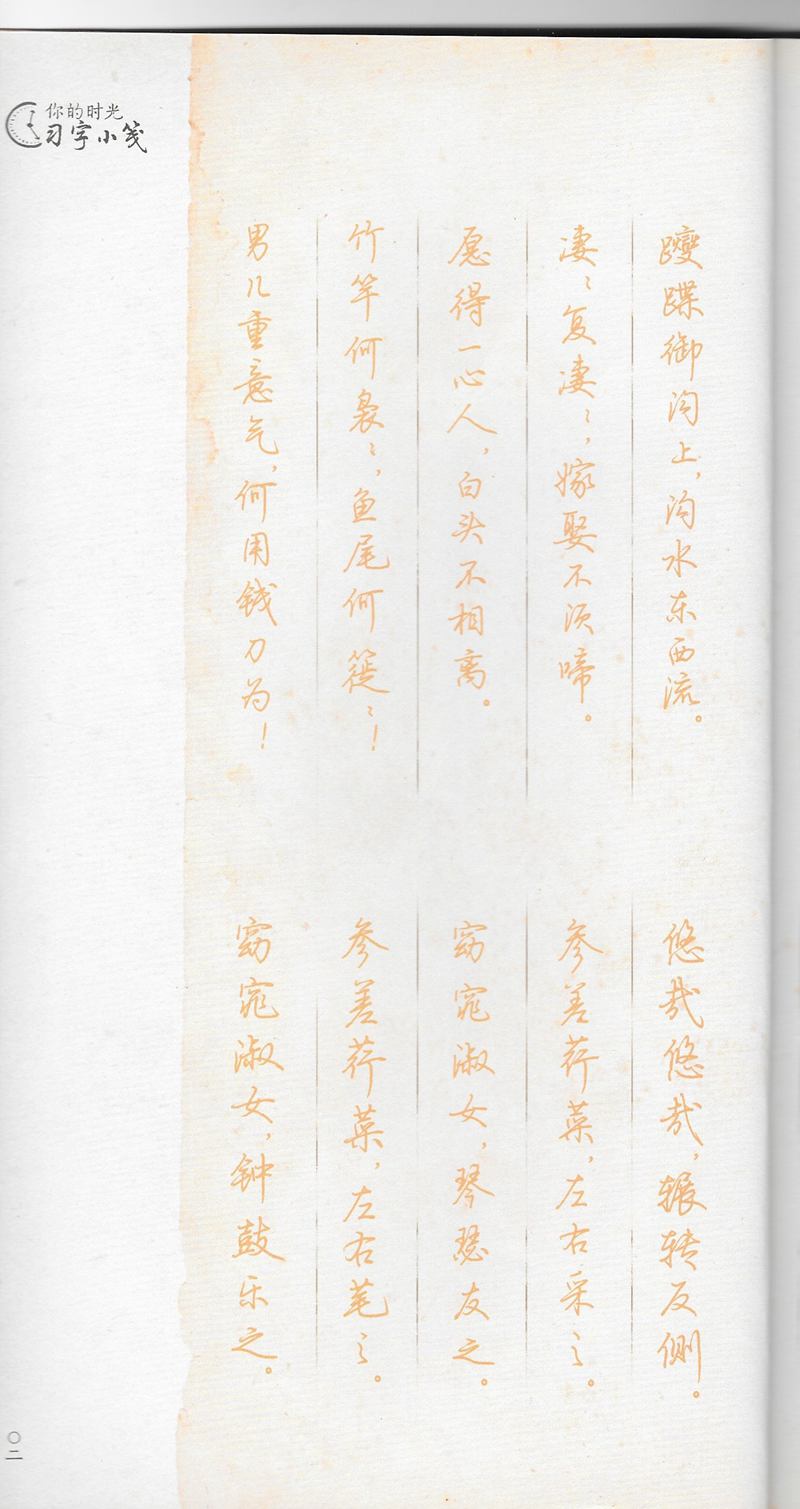 你的时光
习字小笺
躞蹀御沟上，沟水东西流。
凄〻复凄〻，嫁娶不须啼。
愿得一心人，白头不相离。
竹竿何袅〻，鱼尾何簁〻！
男儿重意气，何用钱刀为！
悠哉悠哉，辗转反侧。
参差荇菜，左右采之。
窈窕淑女，琴瑟友之。
参差荇菜，左右芼之。
窈窕淑女，钟鼓乐之。
〇二